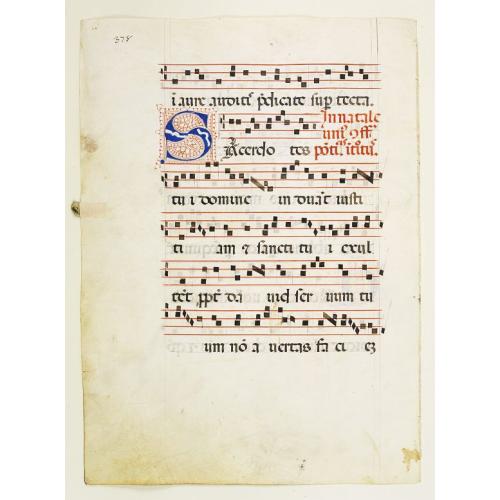 378
i aure auditis p̄dicate sup̄ tecta.
In natale
uni9 9ff̄
Sacerdo tes pōti. itoit9.
tu i domine in duāt iusti
ti am & sancti tu i exul
tēt p̄pt̄ da uid ser uum tu
um nō a uertas fa ci ez